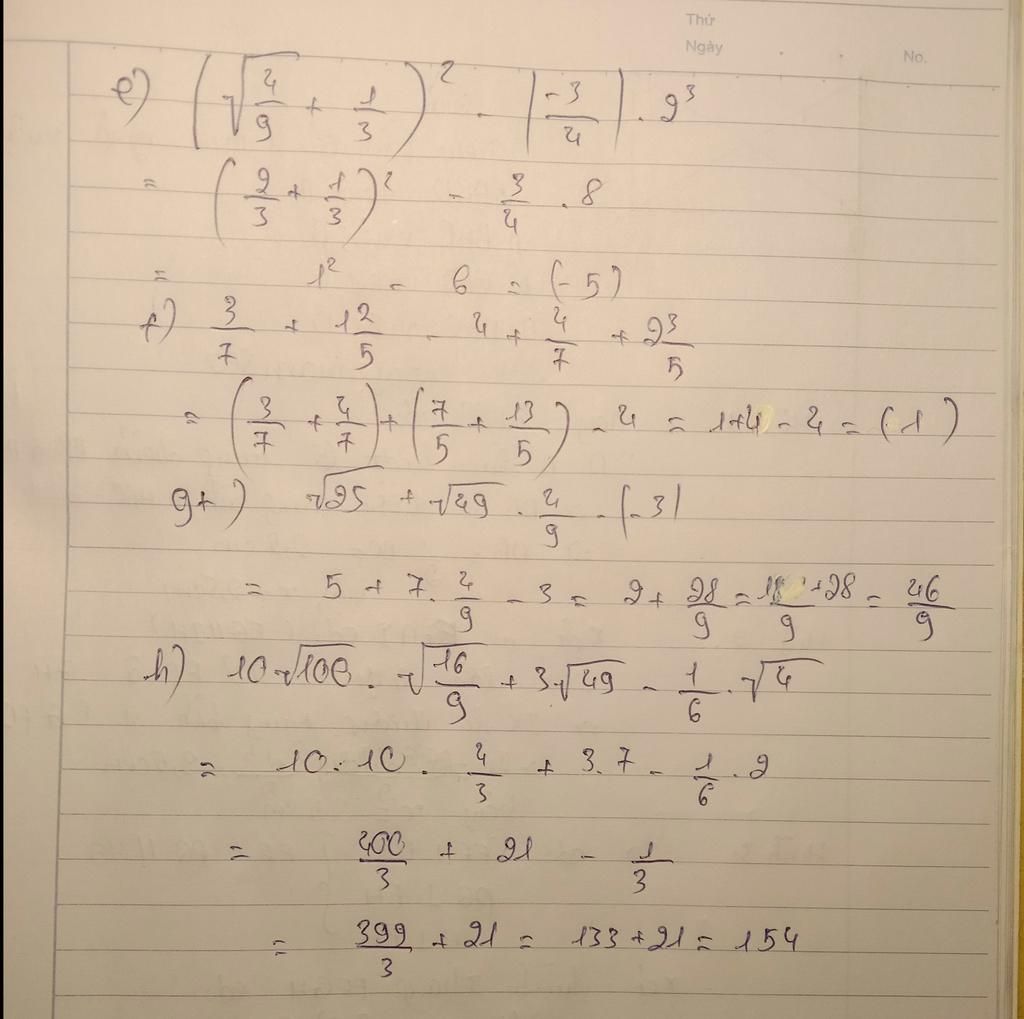 Thứ
Ngày . . No.
e) (√(4/9) + 1/3)² - |-3/4| . 2³
= (2/3 + 1/3)² - 3/4 . 8
= 1² - 6 = (-5)
f) 3/7 + 1 2/5 - 4 + 4/7 + 2 3/5
= (3/7 + 4/7) + (7/5 + 13/5) - 4 = 1+4 - 4 = (1)
g) √25 + √49 . 4/9 - |-3|
= 5 + 7 . 4/9 - 3 = 2 + 28/9 = (18+28)/9 = 46/9
h) 10√100 . √(16/9) + 3√49 - 1/6 . √4
= 10 . 10 . 4/3 + 3.7 - 1/6 . 2
= 400/3 + 21 - 1/3
= 399/3 + 21 = 133 + 21 = 154